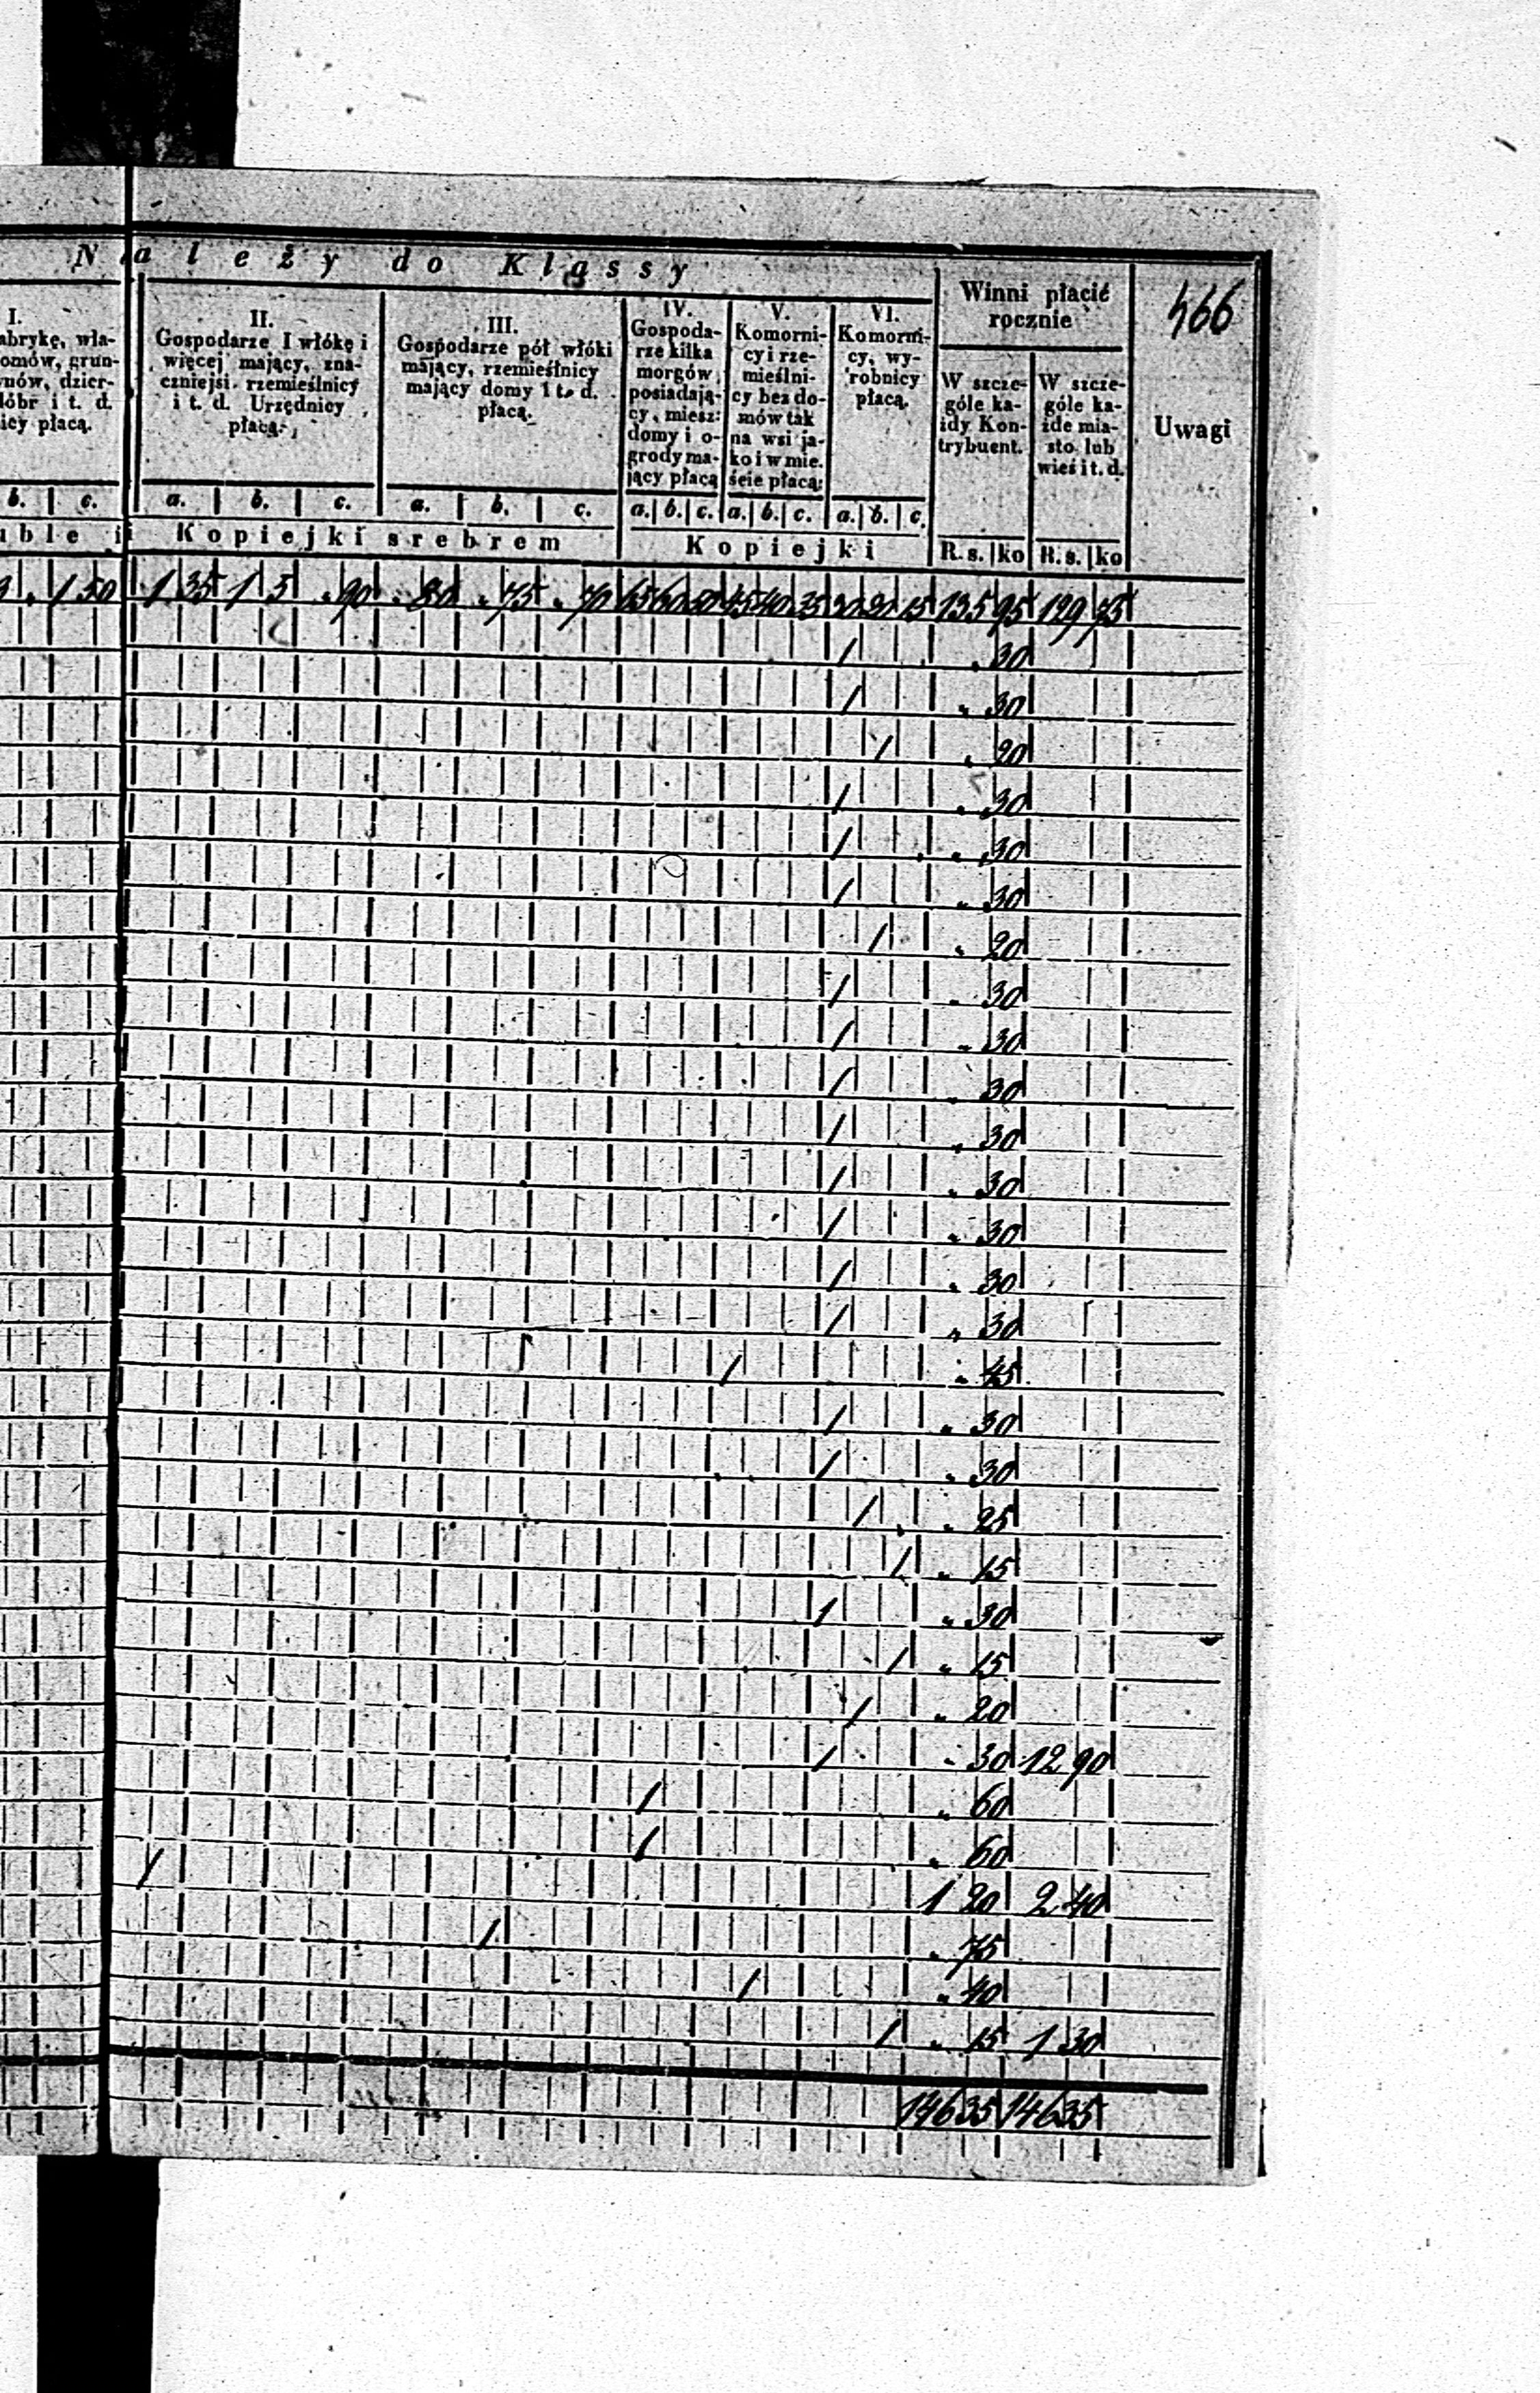 Należy do Klassy
Winni płacić
rocznie
466
I.
abrykę, wła-
omów, grun-
ynów, dzier-
dóbr i t. d.
icy płacą.
II.
Gospodarze 1 włókę i
więcej mający, zna-
czniejsi rzemieślnicy
i t. d. Urzędnicy
płacą.
III.
Gospodarze pół włóki
mający, rzemieślnicy
mający domy i t. d.
płacą.
IV.
Gospoda-
rze kilka
morgów
posiadają-
cy, miesz:
domy i o-
grody ma-
jący płacą
V.
Komorni-
cy i rze-
mieślni-
cy bez do-
mów tak
na wsi ja-
ko i w mie.
ście płacą:
VI.
Komorni-
cy, wy-
robnicy
płacą.
W szcze-
góle ka-
żdy Kon-
trybuent.
W szcze-
góle ka-
żde mia-
sto lub
wieś i t. d.
Uwagi
b. c. a. b. c. a. b. c. a. b. c. a. b. c. a. b. c.
uble i Kopiejki srebrem Kopiejki R.s. ko R.s. ko
1 50 1 35 1 5 " 90 " 80 " 75 " 70 65 60 50 45 40 35 30 20 15 135 95 129 75
/ " 30
/ " 30
/ " 20
/ " 30
/ " 30
/ " 30
/ " 20
/ " 30
/ " 30
/ " 30
/ " 30
/ " 30
/ " 30
/ " 30
/ " 30
/ " 45
/ " 30
/ " 30
/ " 25
/ " 15
/ " 30
/ " 15
/ " 20
/ " 30 12 90
/ " 60
/ " 60
/ 1 20 2 40
/ " 75
/ " 40
/ " 15 1 30
146 35 146 35